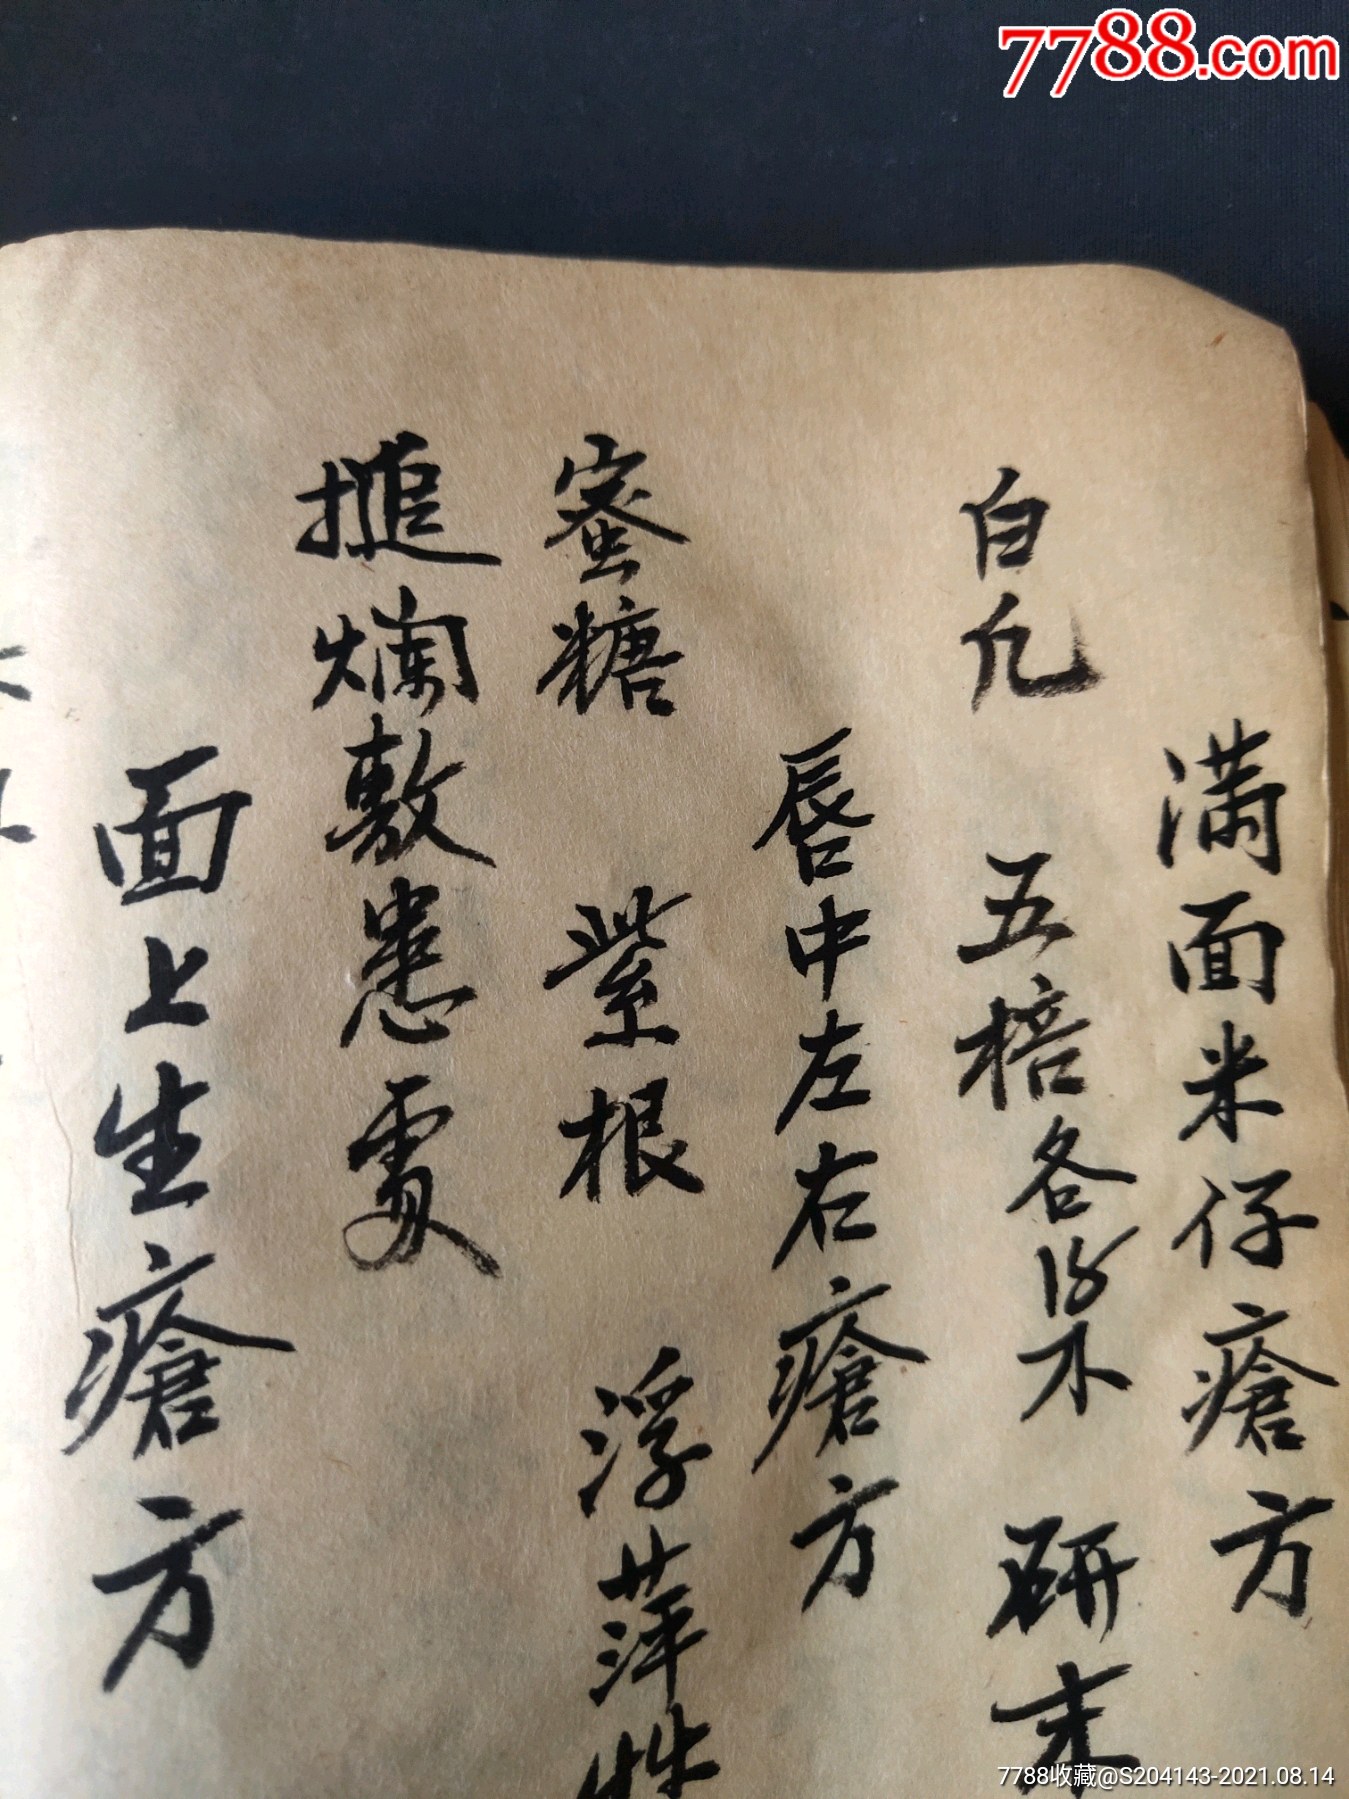 7788.com
满面米仔瘡方
白凡 五棓各 研末
唇中左右瘡方
蜜糖 紫根 浮萍
搥爛敷患處
面上生瘡方
7788收藏@S204143-2021.08.14